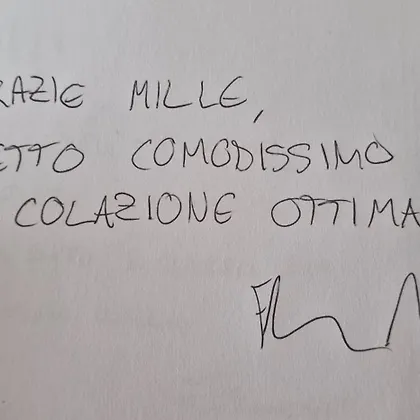 RAZIE MILLE,
ETTO COMODISSIMO
COLAZIONE OTTIMA